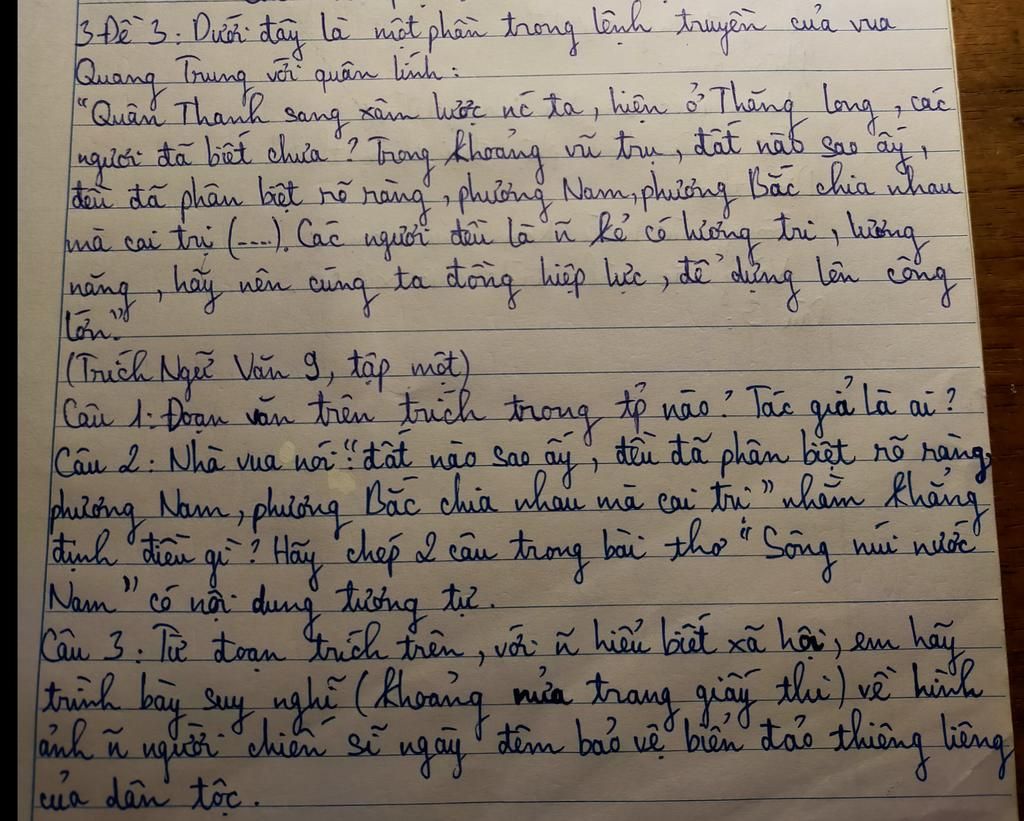 3 Đề 3: Dưới đây là một phần trong lệnh truyền của vua
Quang Trung với quân lính:
"Quân Thanh sang xâm lược nc ta, hiện ở Thăng Long, các
người đã biết chưa? Trong khoảng vũ trụ, đất nào sao ấy,
đều đã phân biệt rõ ràng, phương Nam, phương Bắc chia nhau
mà cai trị (....). Các người đều là ~ kẻ có lương tri, lương
năng, hãy nên cùng ta đồng hiệp lực, để dựng lên công
lớn."
(Trích Ngữ Văn 9, tập một)
Câu 1: Đoạn văn trên trích trong tp nào? Tác giả là ai?
Câu 2: Nhà vua nói: "đất nào sao ấy, đều đã phân biệt rõ ràng,
phương Nam, phương Bắc chia nhau mà cai trị" nhằm khẳng
định điều gì? Hãy chép 2 câu trong bài thơ "Sông núi nước
Nam" có nội dung tương tự.
Câu 3: Từ đoạn trích trên, với ~ hiểu biết xã hội, em hãy
trình bày suy nghĩ (khoảng nửa trang giấy thi) về hình
ảnh ~ người chiến sĩ ngày đêm bảo vệ biển đảo thiêng liêng
của dân tộc.